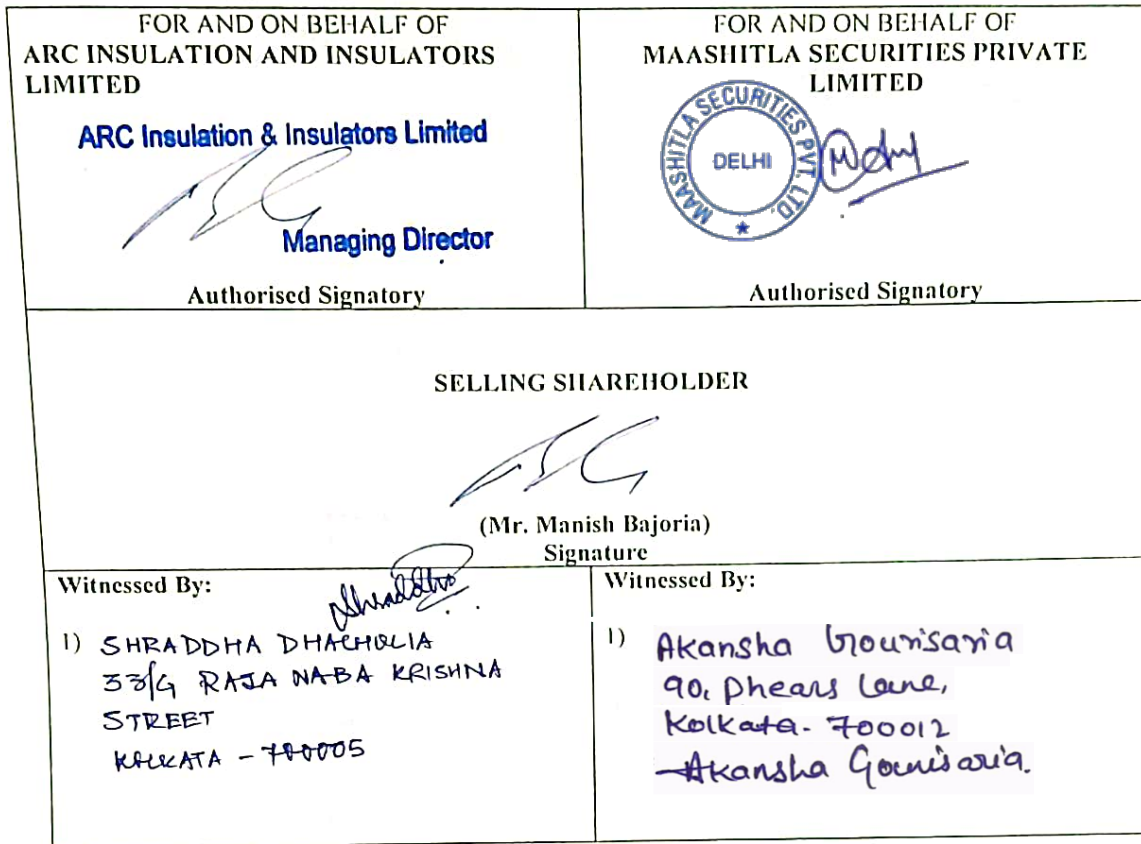 FOR AND ON BEHALF OF
ARC INSULATION AND INSULATORS
LIMITED
ARC Insulation & Insulators Limited
Managing Director
Authorised Signatory
FOR AND ON BEHALF OF
MAASHITLA SECURITIES PRIVATE
LIMITED
MAASHITLA SECURITIES PVT. LTD.
DELHI
Authorised Signatory
SELLING SHAREHOLDER
(Mr. Manish Bajoria)
Signature
Witnessed By:
Shraddha
1) SHRADDHA DHACHOLIA
33/G RAJA NABA KRISHNA
STREET
KOLKATA - 700005
Witnessed By:
1) Akansha Gourisaria
90, Phears Lane,
Kolkata- 700012
Akansha Gourisaria.